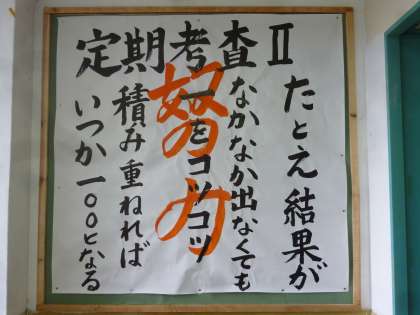 定期考査Ⅱ
たとえ結果が
なかなか出なくても
一をコツコツ
積み重ねれば
いつか一〇〇となる
努力